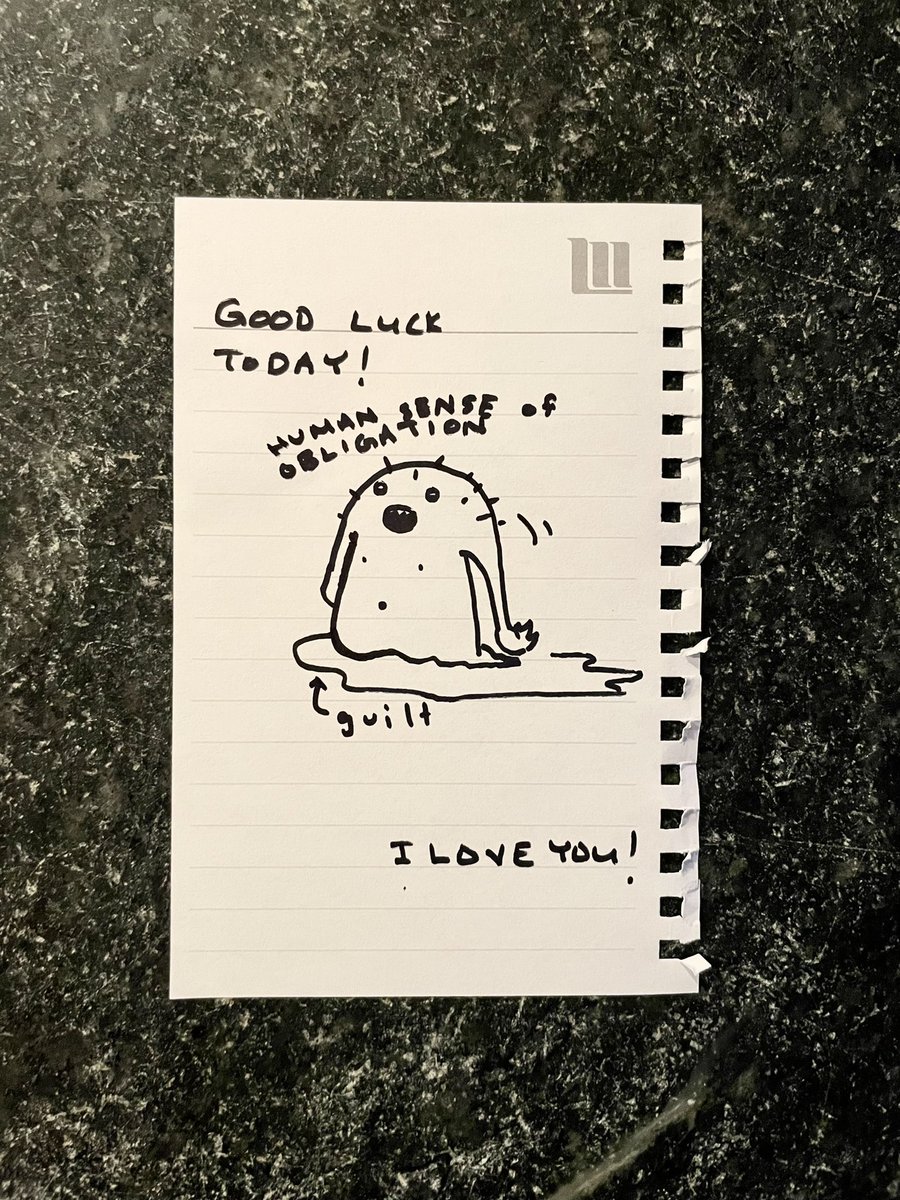 GOOD LUCK
TODAY!
HUMAN SENSE of
OBLIGATION
guilt
I LOVE YOU!